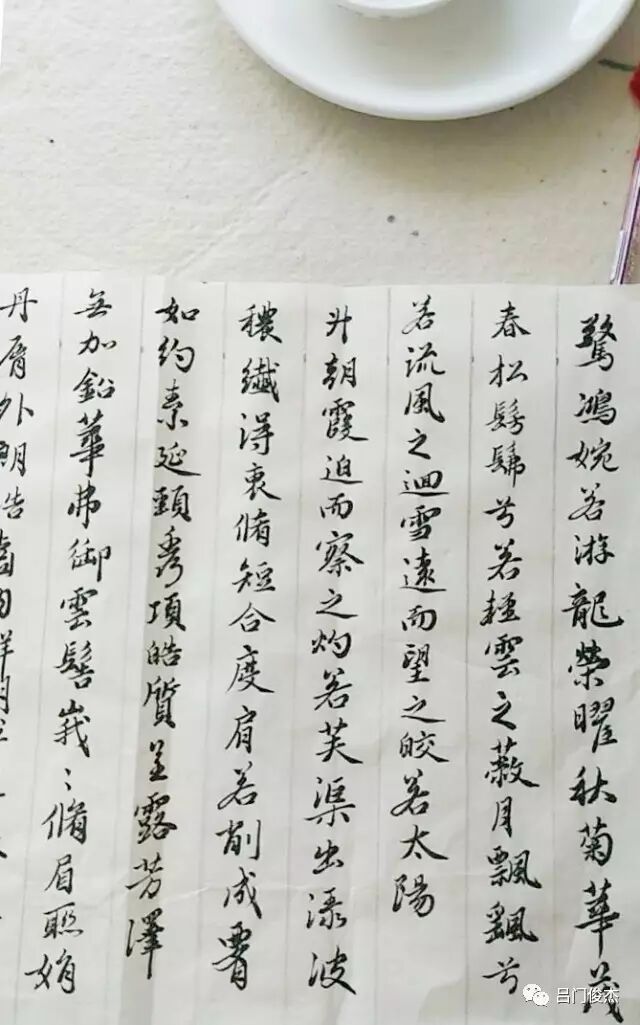 驚鴻婉若游龍榮曜秋菊華茂
春松髣髴兮若輕雲之蔽月飄飖兮
若流風之迴雪遠而望之皎若太陽
升朝霞迫而察之灼若芙渠出淥波
穠纖得衷脩短合度肩若削成署
如約素延頸秀項皓質呈露芳澤
無加鉛華弗御雲髻峩〻脩眉聯娟
丹脣外朗皓齒內鮮明
吕门俊杰